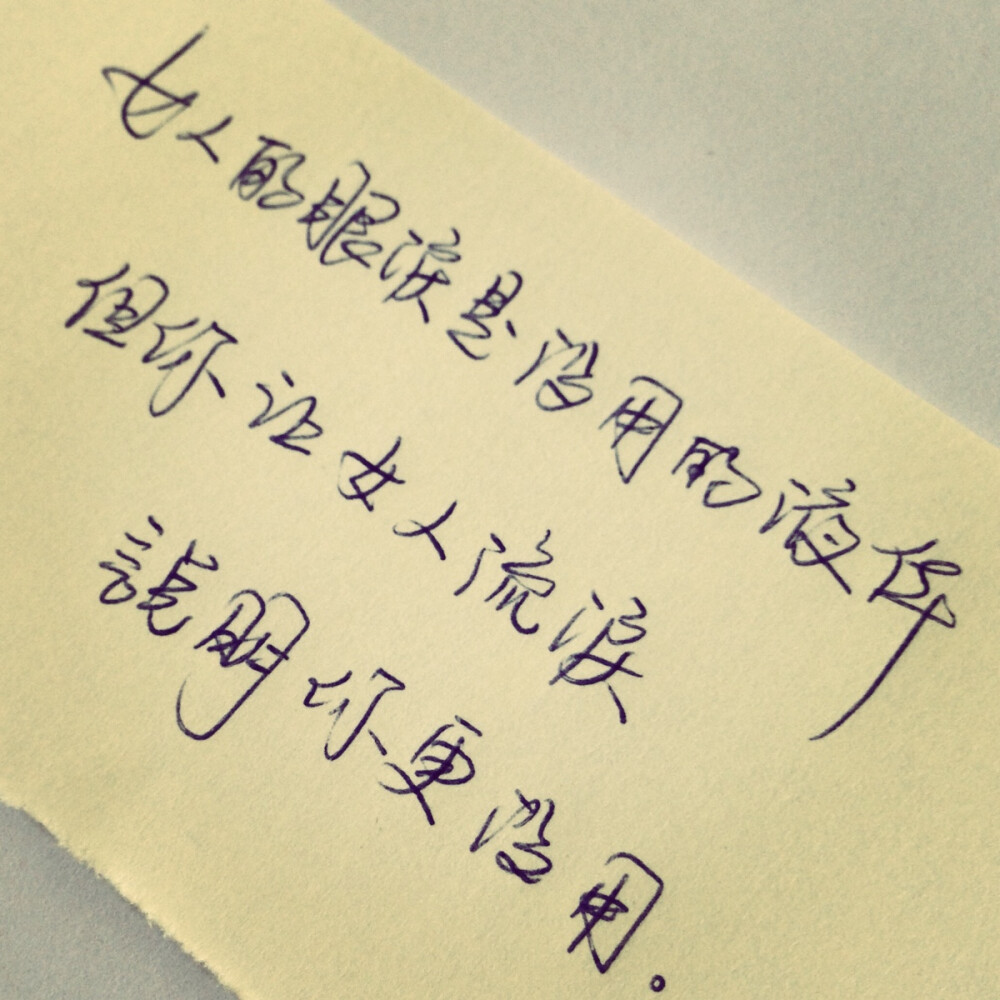 女人的眼淚是没用的液体
但你让女人流淚
說明你更没用。